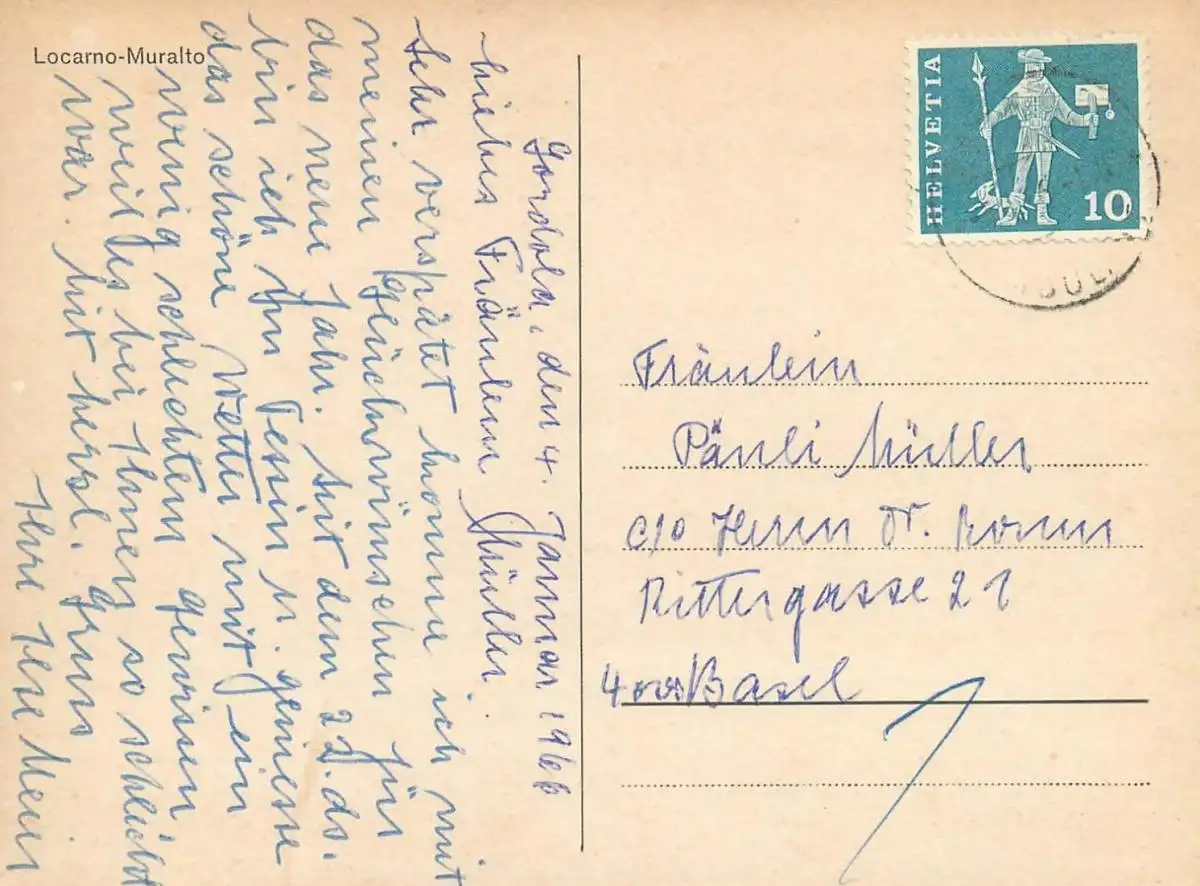 Locarno-Muralto
Gordola, den 4. Januar 1966
Liebes Fräulein Müller.
Sehr verspätet komme ich mit
meinen Glückwünschen für
das neue Jahr. Seit dem 22. ds.
bin ich im Tessin u. geniesse
das schöne Wetter mit ein
wenig schlechtem gewissen
weil es bei Ihnen so schlecht
war. Mit herzl. Gruss
Ihre Ilse Meier
HELVETIA
10
Fräulein
Päuli Müller
c/o Herrn Dr.
Rittergasse 21
4000 Basel